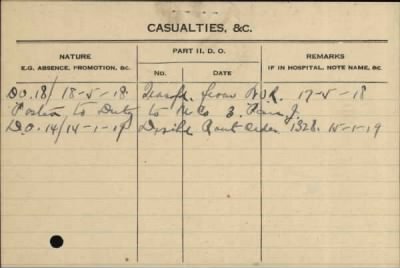 CASUALTIES, &C.
NATURE
E.G. ABSENCE, PROMOTION, &C.
PART II. D. O.
NO.
DATE
REMARKS
IF IN HOSPITAL, NOTE NAME, &C.
D.O. 18/ 18-5-18. Transfd. from 17-5-18
Posted to Duty to No
D.O. 14/14-1-19 Rout Order 1328. 15-1-19